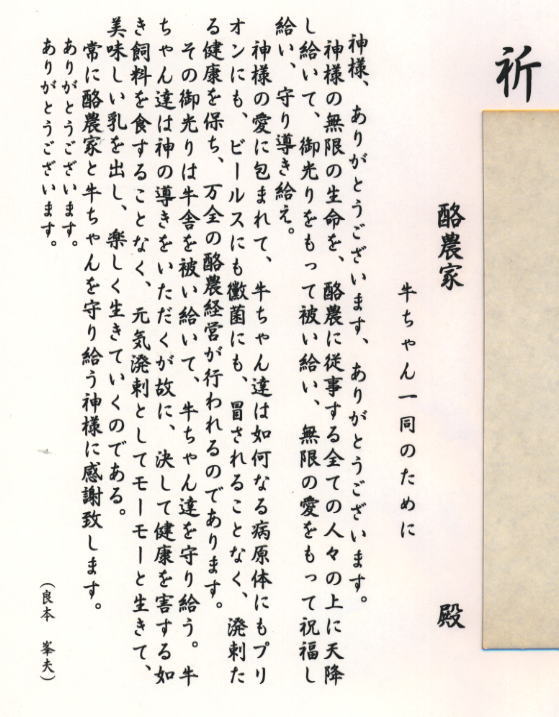 祈
酪農家　殿
牛ちゃん一同のために
神様、ありがとうございます、ありがとうございます。
神様の無限の生命を、酪農に従事する全ての人々の上に天降
し給いて、御光りをもって被い給い、無限の愛をもって祝福し
給い、守り導き給え。
神様の愛に包まれて、牛ちゃん達は如何なる病原体にもプリ
オンにも、ビールスにも黴菌にも、冒されることなく、溌剌た
る健康を保ち、万全の酪農経営が行われるのであります。
その御光りは牛舎を被い給いて、牛ちゃん達を守り給う。牛
ちゃん達は神の導きをいただくが故に、決して健康を害する如
き飼料を食することなく、元気溌剌としてモーモーと生きて、
美味しい乳を出し、楽しく生きていくのである。
常に酪農家と牛ちゃんを守り給う神様に感謝致します。
ありがとうございます。
ありがとうございます。
（良本　峯夫）